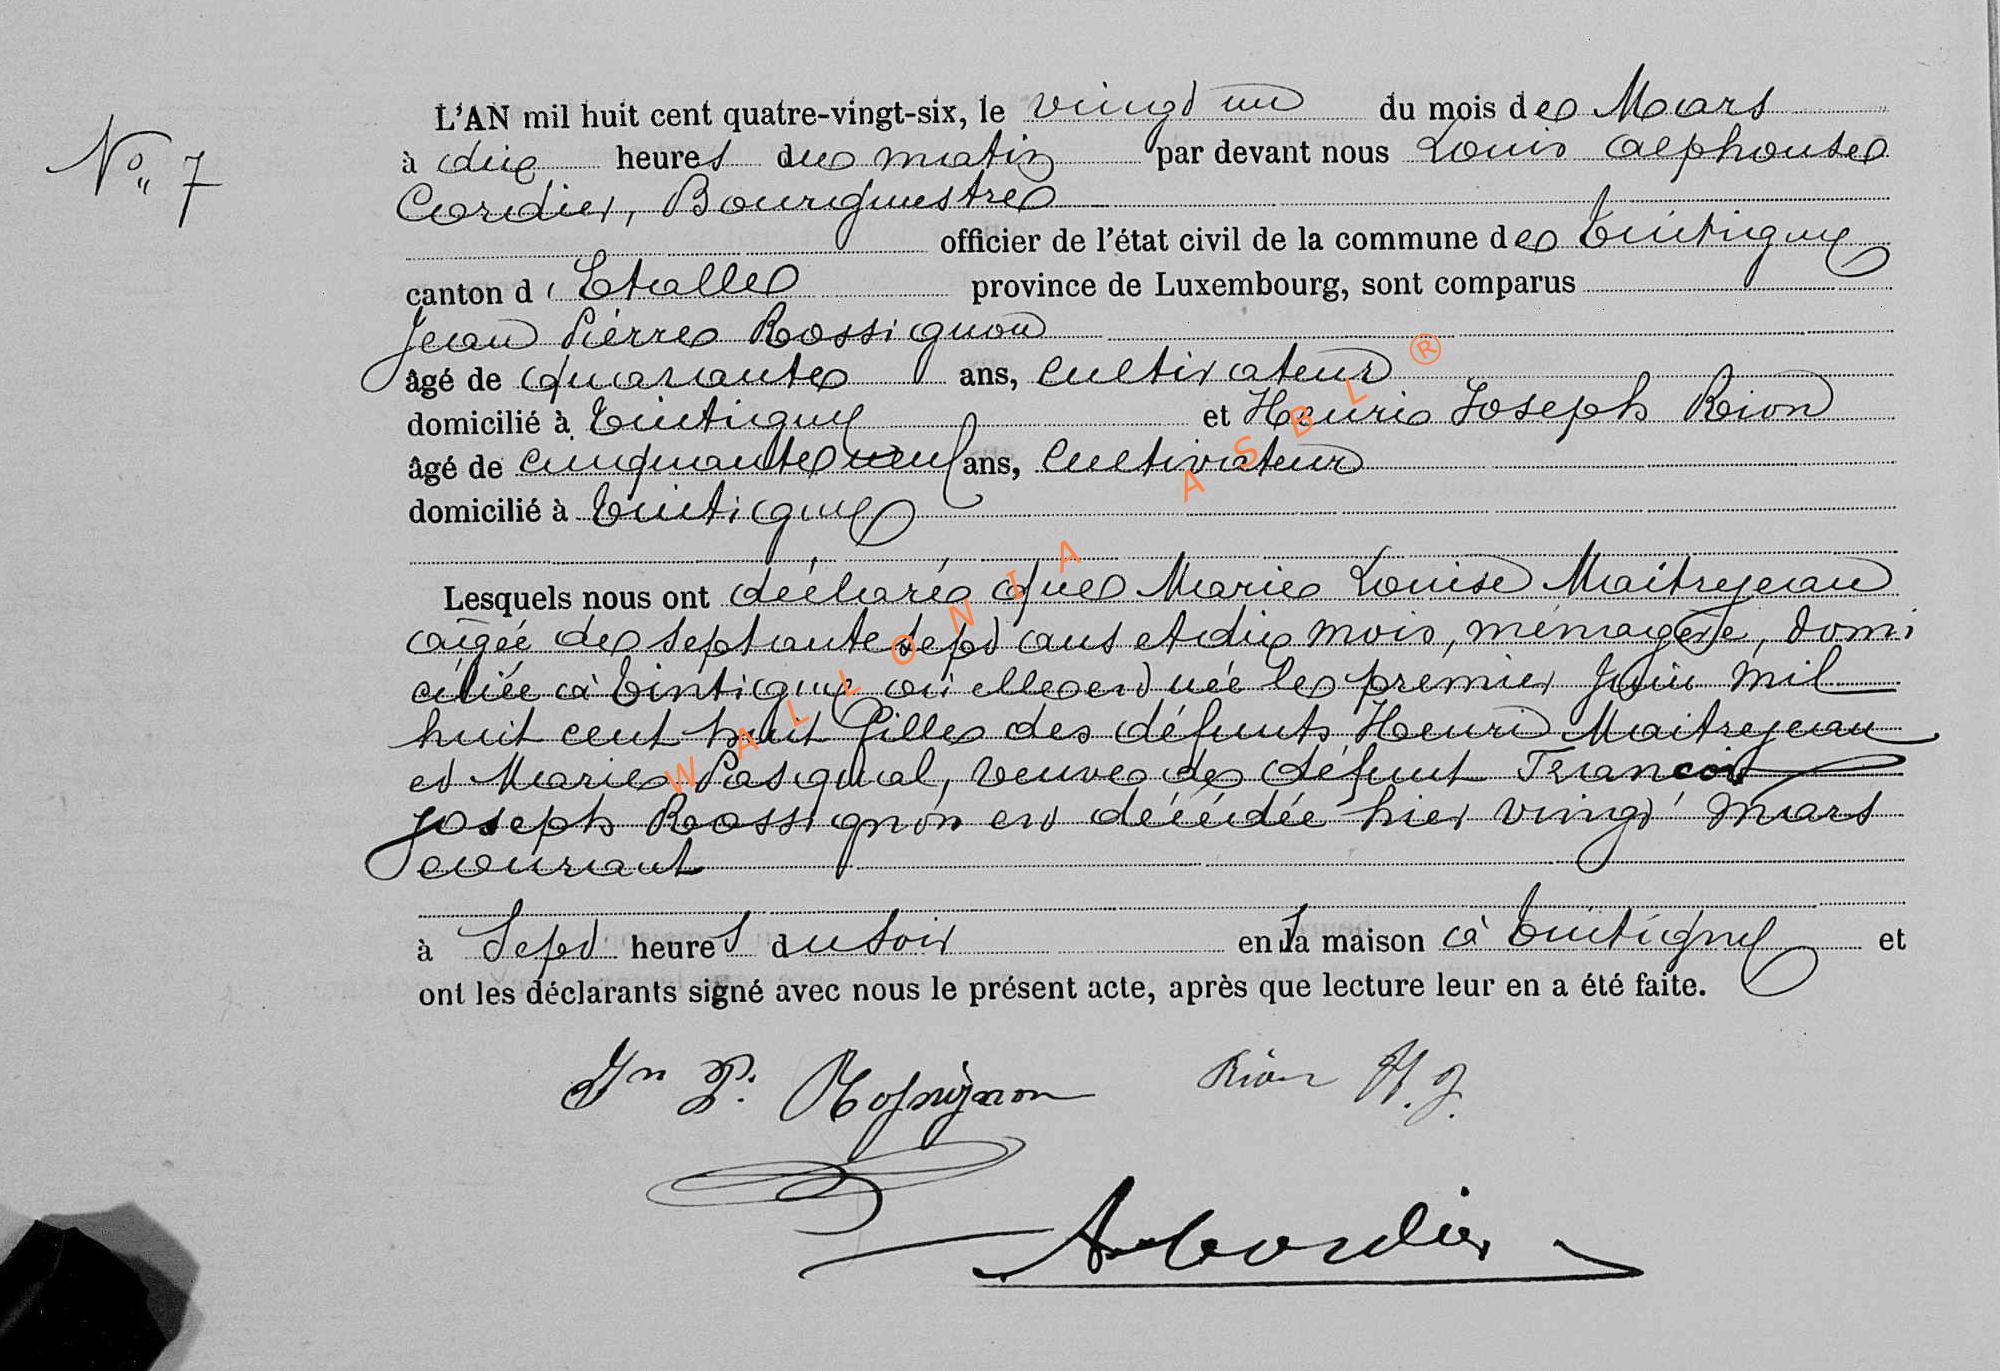 L'AN mil huit cent quatre-vingt-six, le vingt un du mois de Mars
N° 7
à dix heures du matin par devant nous Louis Alphonse
Cordier, Bourgmestre
officier de l'état civil de la commune de Tintigny
canton d'Etalle province de Luxembourg, sont comparus
Jean Pierre Rossignon
âgé de quarante ans, cultivateur
domicilié à Tintigny et Henri Joseph Rion
âgé de cinquante neuf ans, cultivateur
domicilié à Tintigny
Lesquels nous ont déclaré que Marie Louise Maitrejean
âigée de septante sept ans et dix mois, ménagère, domi
ciliée à Tintigny où elle est née le premier Juin mil
huit cent huit fille des défunts Henri Maitrejean
et Marie Pasqual, veuve de défunt François
Joseph Rossignon est décédée hier vingt Mars
courant
à Sept heures du soir en sa maison à Tintigny et
ont les déclarants signé avec nous le présent acte, après que lecture leur en a été faite.
Jn P. Rossignon Rion H. J.
A Cordier
WALLONIA ASBL ®